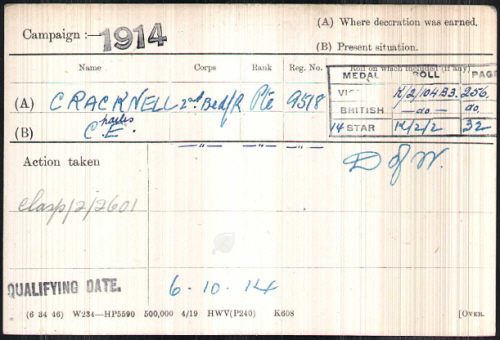 Campaign :— 1914
(A) Where decoration was earned.
(B) Present situation.
Name Corps Rank Reg. No. Roll on which included (if any)
MEDAL ROLL PAGE
(A) CRACKNELL 2nd Bedf/R Pte 9518
VIC K/2/104B3. 256.
(B) C.harles E. — " — — " — — " —
BRITISH — do — do.
14 STAR K/2/2 32
Action taken
D of W.
clasp/2/2601
QUALIFYING DATE. 6-10-14
(6 34 46) W234—HP5590 500,000 4/19 HWV(P240) K608 [OVER.